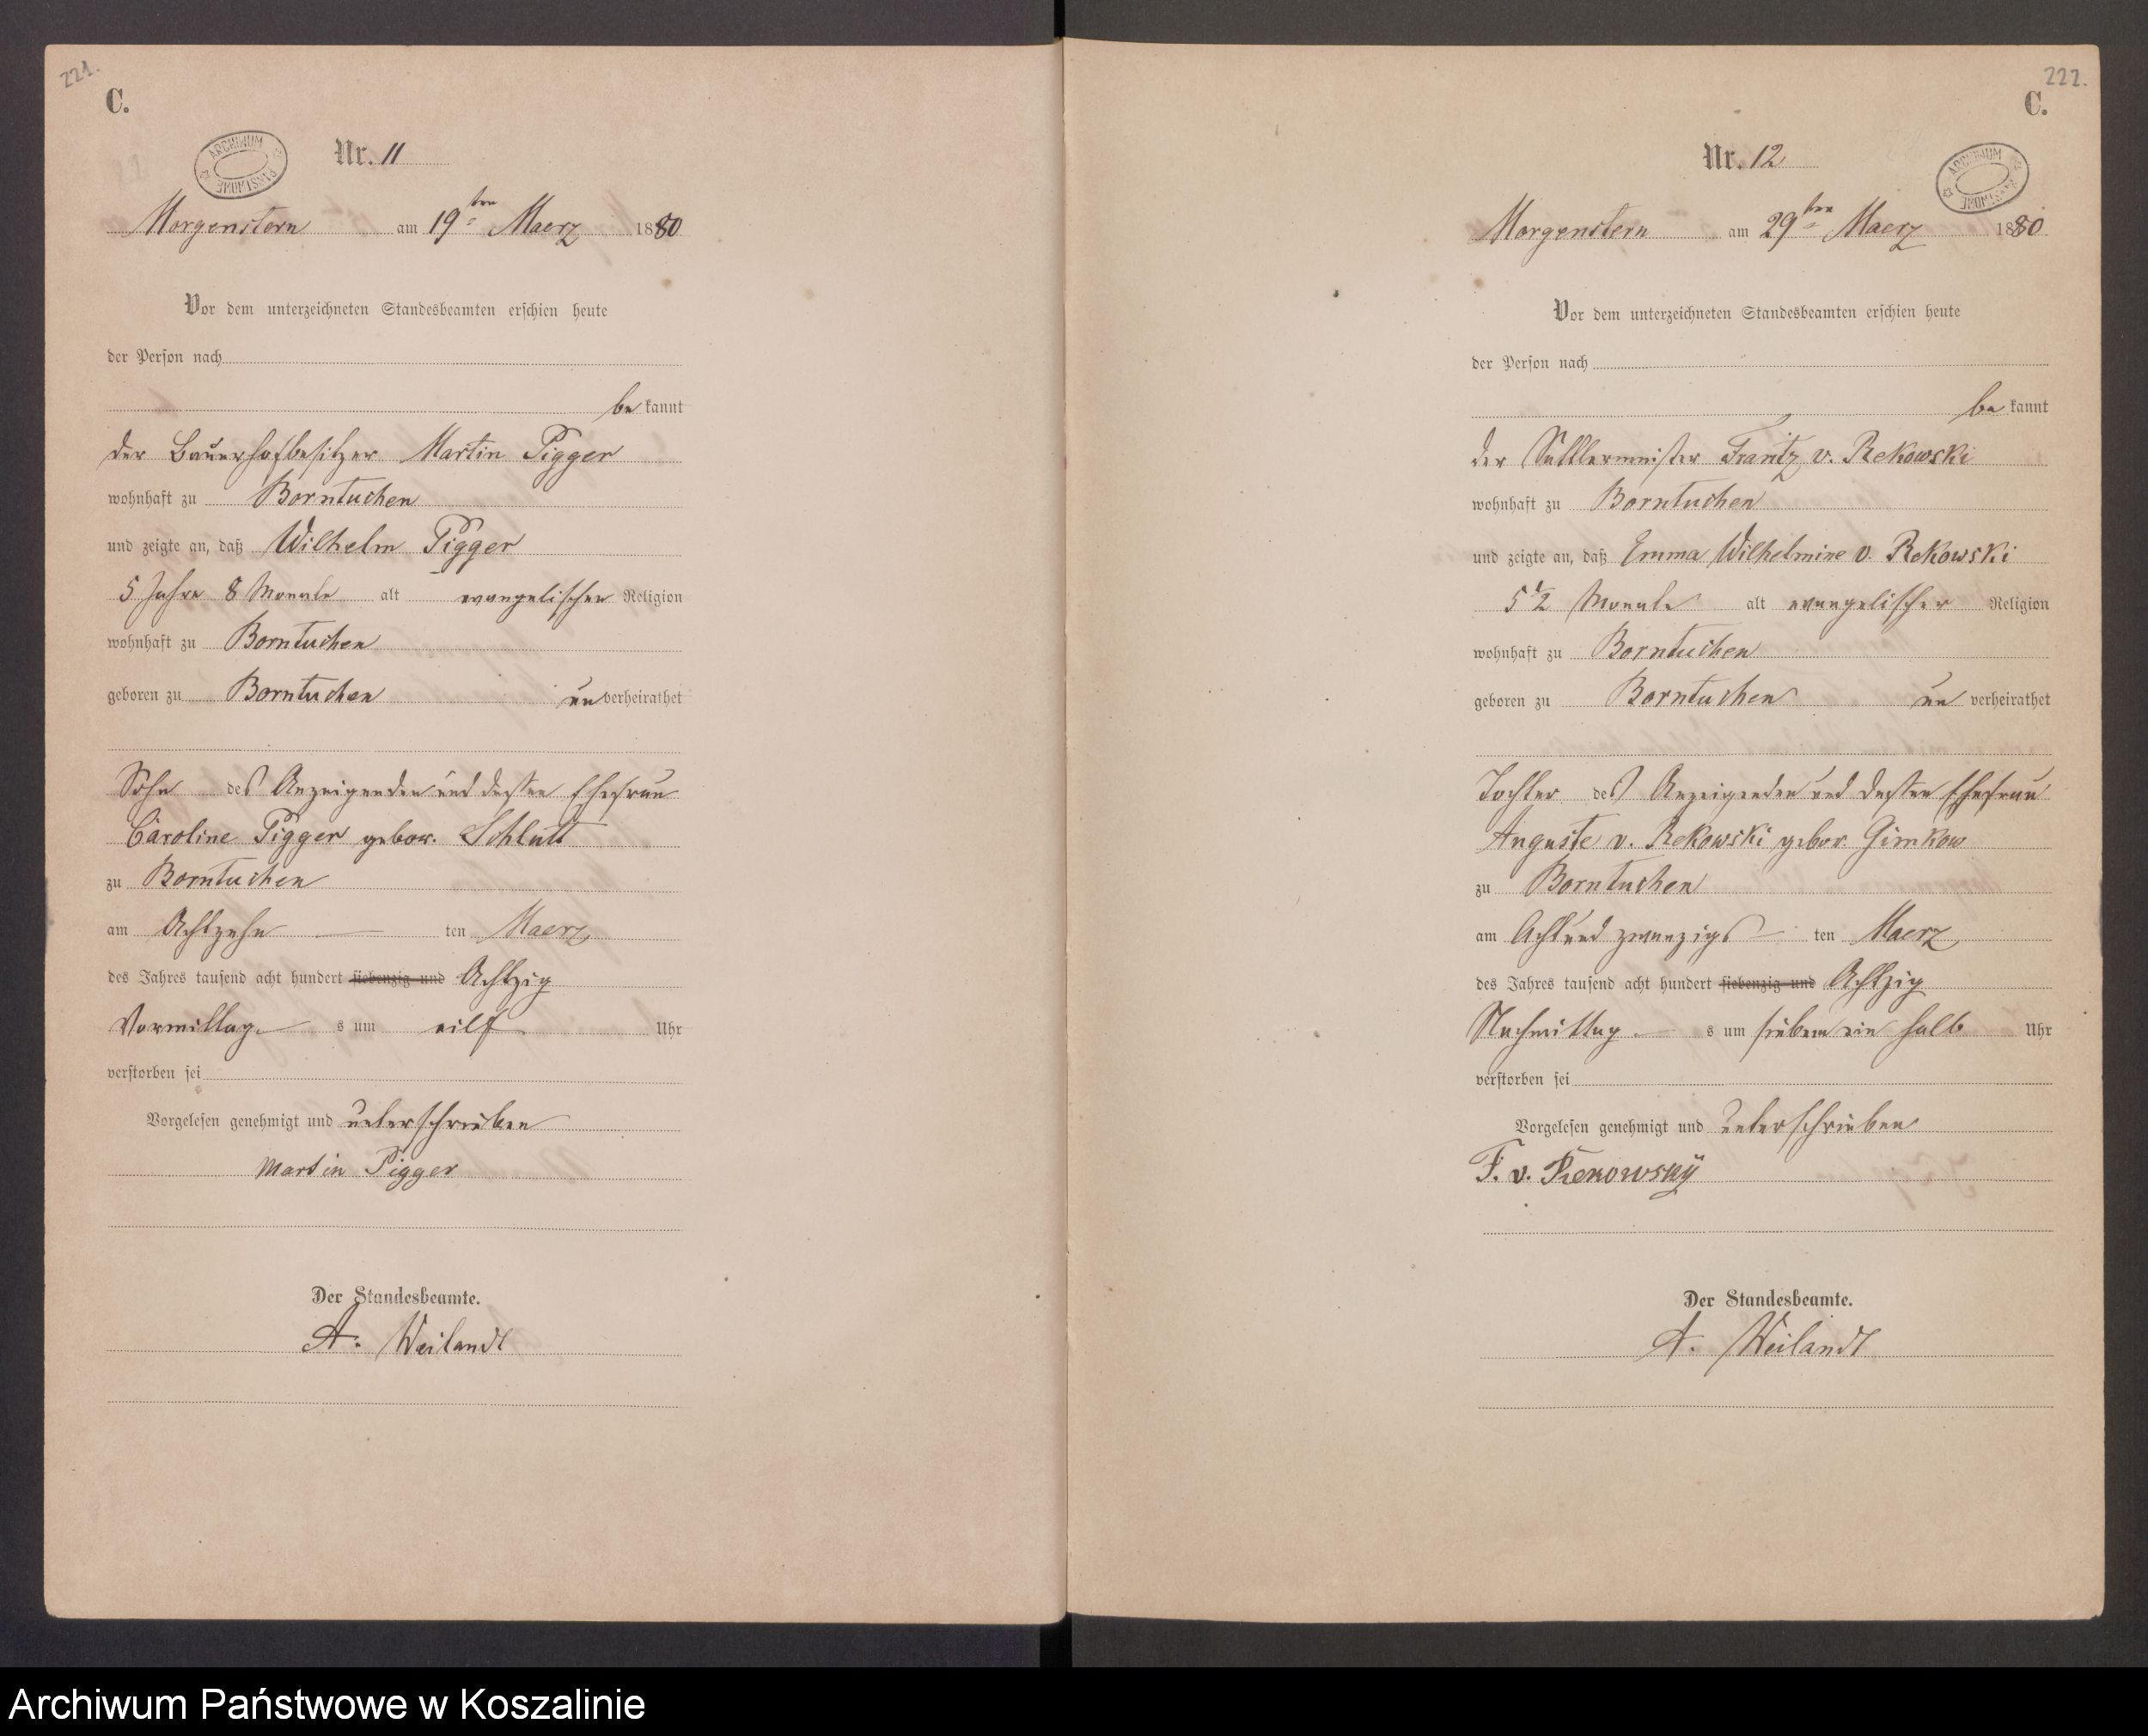 221.
C.
ARCHIWUM PAŃSTWOWE
Nr. 11
Morgenstern am 19ten Maerz 1880
Vor dem unterzeichneten Standesbeamten erschien heute
der Person nach
be kannt
der Bauerhofbesitzer Martin Pigger
wohnhaft zu Borntuchen
und zeigte an, daß Wilhelm Pigger
5 Jahre 8 Monate alt evangelischer Religion
wohnhaft zu Borntuchen
geboren zu Borntuchen un verheirathet
Sohn des Anzeigenden und dessen Ehefrau
Caroline Pigger gebor. Schlutt
zu Borntuchen
am Achtzehn ten Maerz
des Jahres tausend acht hundert siebenzig und Achtzig
Vormittag s um eilf Uhr
verstorben sei
Vorgelesen genehmigt und unterschrieben
Martin Pigger
Der Standesbeamte.
A. Weilandt
222.
C.
ARCHIWUM PAŃSTWOWE
Nr. 12
Morgenstern am 29ten Maerz 1880
Vor dem unterzeichneten Standesbeamten erschien heute
der Person nach
be kannt
der Sattlermeister Frantz v. Rekowski
wohnhaft zu Borntuchen
und zeigte an, daß Emma Wilhelmine v. Rekowski
5 1/2 Monate alt evangelischer Religion
wohnhaft zu Borntuchen
geboren zu Borntuchen un verheirathet
Tochter des Anzeigenden und dessen Ehefrau
Auguste v. Rekowski gebor. Gimkow
zu Borntuchen
am Acht und zwanzigs ten Maerz
des Jahres tausend acht hundert siebenzig und Achtzig
Nachmittag s um sieben ein halb Uhr
verstorben sei
Vorgelesen genehmigt und unterschrieben
F. v. Rekowsky
Der Standesbeamte.
A. Weilandt
Archiwum Państwowe w Koszalinie